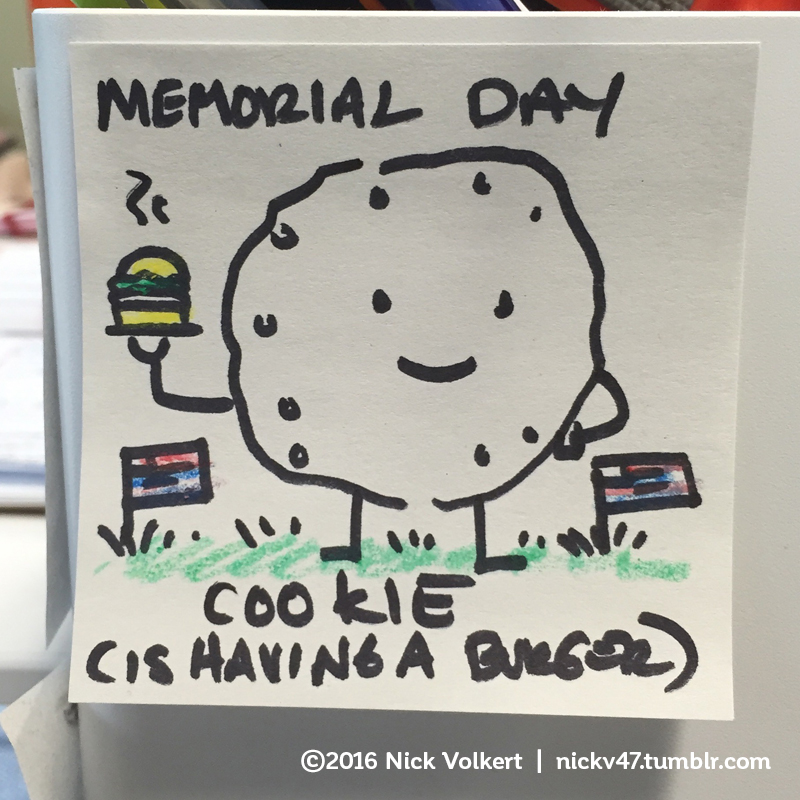 MEMORIAL DAY
COOKIE
(IS HAVING A BURGER)
©2016 Nick Volkert | nickv47.tumblr.com